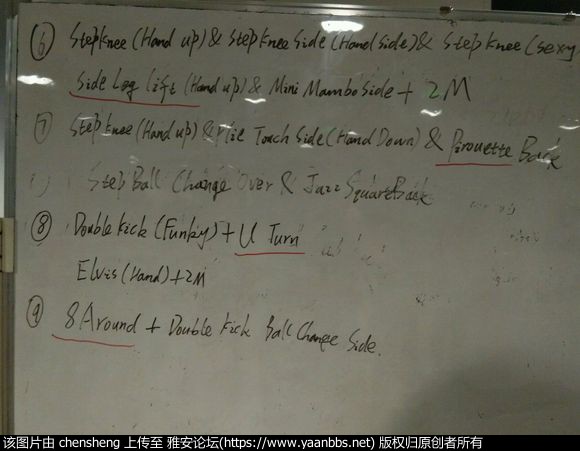 ⑥ Step Knee (Hand up) & Step Knee Side (Hand side) & Step Knee (Sexy
Side Leg lift (Hand up) & Mini Mambo Side + 2M
⑦ Step Knee (Hand up) & Plie Touch Side (Hand Down) & Pirouette Back
Step Ball Change Over & Jazz Square Back
⑧ Double Kick (Funky) + U Turn
Elvis (Hand) + 2M
⑨ 8 Around + Double Kick Ball Change Side.
该图片由 chensheng 上传至 雅安论坛(https://www.yaanbbs.net) 版权归原创者所有